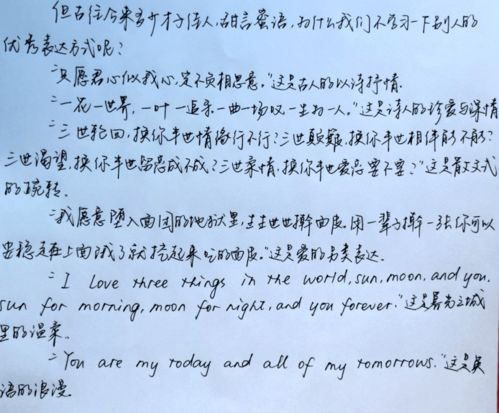 但古往今来多少才子佳人,甜言蜜语,为什么我们不学习一下别人的
优秀表达方式呢?
"只愿君心似我心,定不负相思意。"这是古人的以诗抒情.
"一花一世界,一叶一追寻.一曲一场叹,一生为一人。"这是诗人的珍爱与深情
"三世轮回,换你半世情缘行不行?三世艰难,换你半世相伴能不能?
三世渴望,换你半世留恋成不成?三世柔情,换你半世爱恋要不要?"这是散文式
的婉转.
"我愿意堕入面团的地狱里,生生世世擀面皮.用一辈子擀一张你可以
安稳走在上面饿了就捞起来吃的面皮。"这是爱的另类表达.
"I love three things in the world, sun, moon, and you.
sun for morning, moon for night, and you forever."这是暮光之城
里的温柔.
"You are my today and all of my tomorrows."这是英
语的浪漫.